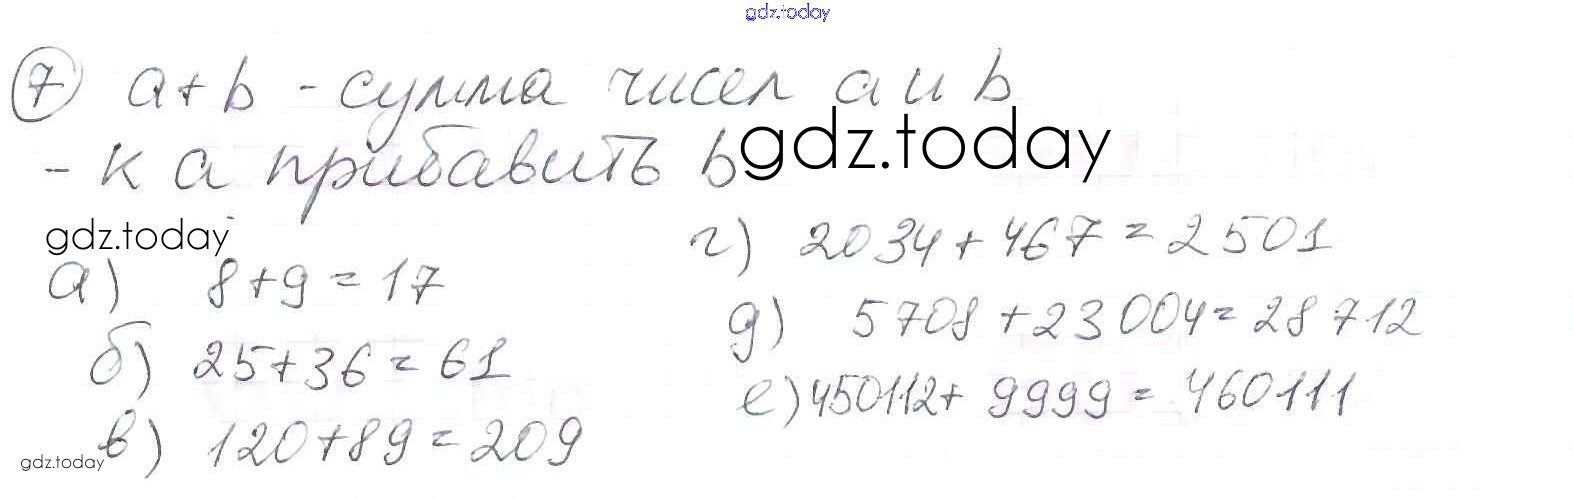 gdz.today
7 a+b - сумма чисел a и b
gdz.today
- к a прибавить b
gdz.today
а) 8+9=17
б) 25+36=61
в) 120+89=209
г) 2034+467=2501
д) 5708+23004=28712
е) 450112+9999=460111
gdz.today